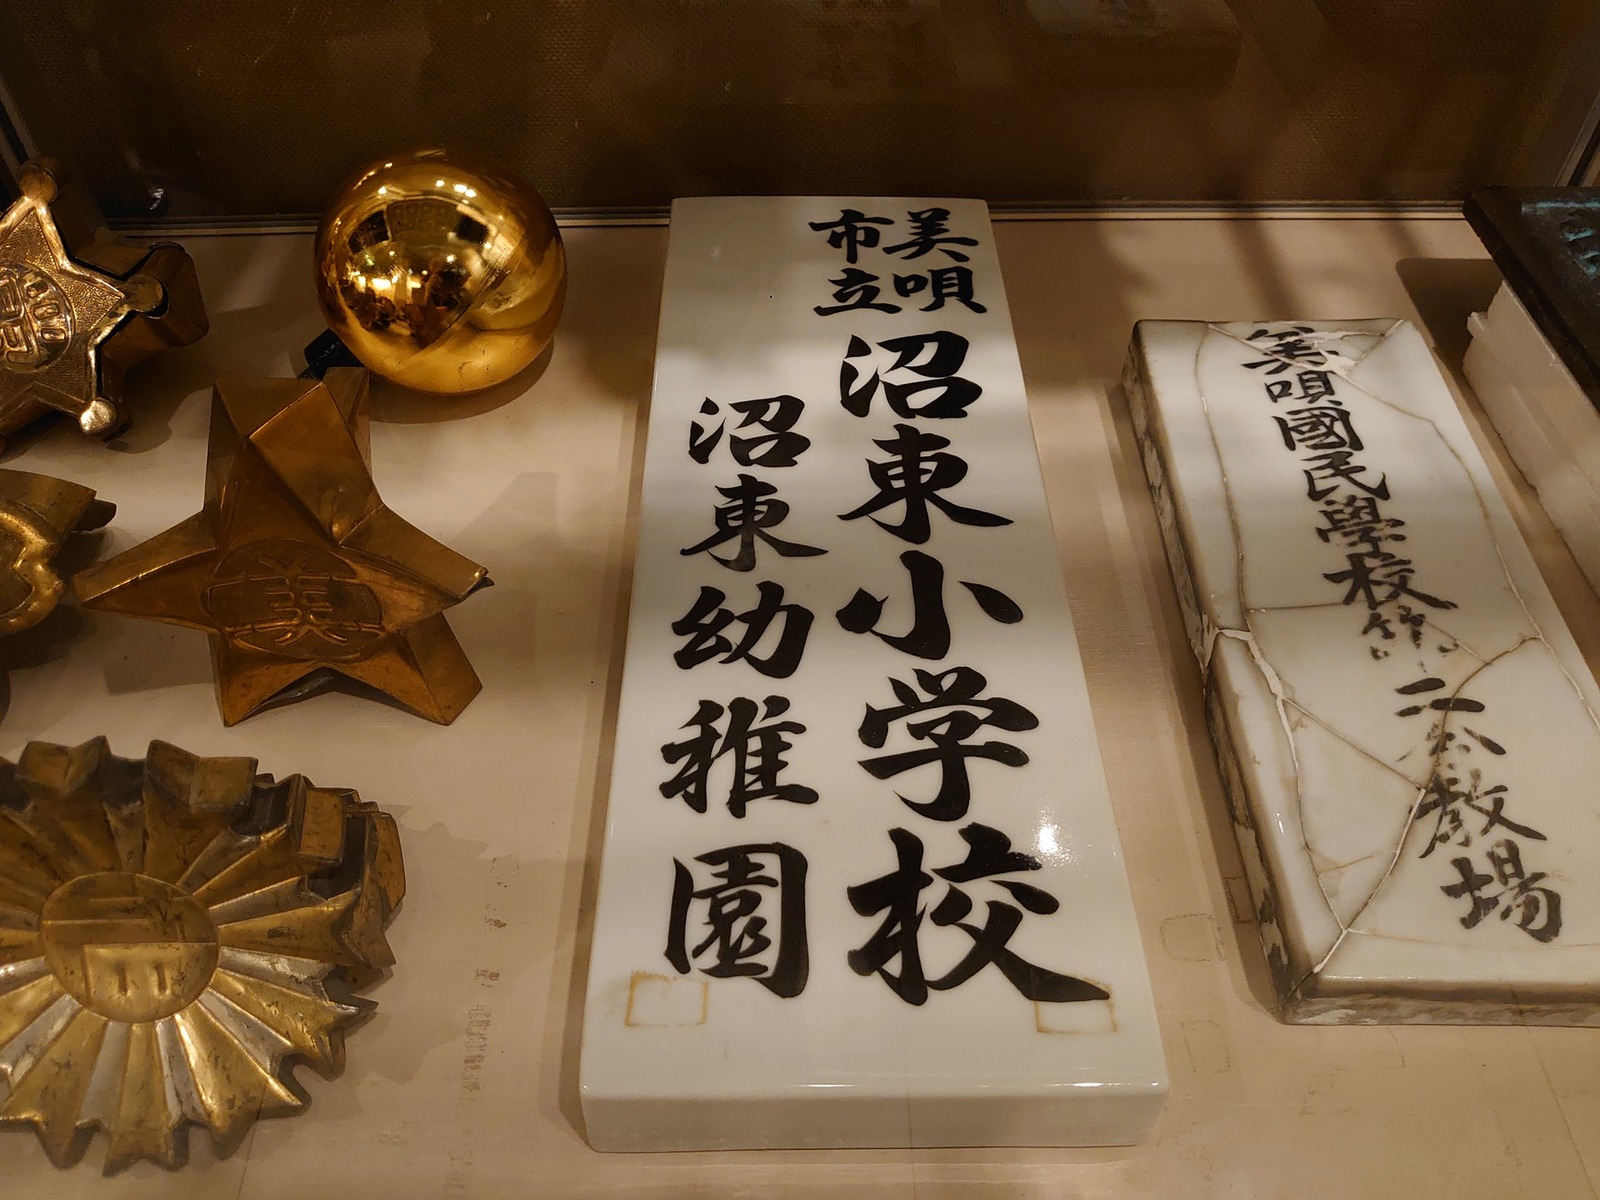 美唄
市立
沼東小学校
沼東幼稚園
美唄國民學校
二分教場
美